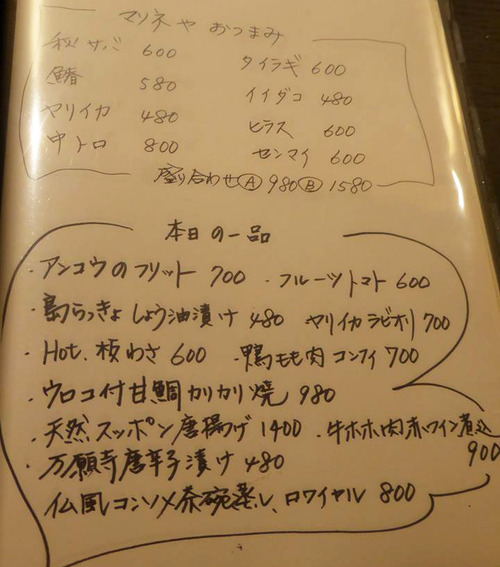 マリネやおつまみ
サバ 600 タイラギ 600
鰆 580 イイダコ 480
ヤリイカ 480 ヒラス 600
中トロ 800 センマイ 600
盛り合わせⒶ 980 Ⓑ 1580
本日の一品
・アンコウのフリット 700 ・フルーツトマト 600
・島らっきょしょう油漬け 480 ヤリイカラビオリ 700
・Hot、板わさ 600 ・鴨もも肉コンフィ 700
・ウロコ付甘鯛カリカリ焼 980
・天然スッポン唐揚げ 1400 ・牛ホホ肉赤ワイン煮込 900
・万願寺唐辛子漬け 480
仏風コンソメ茶碗蒸し、ロワイヤル 800